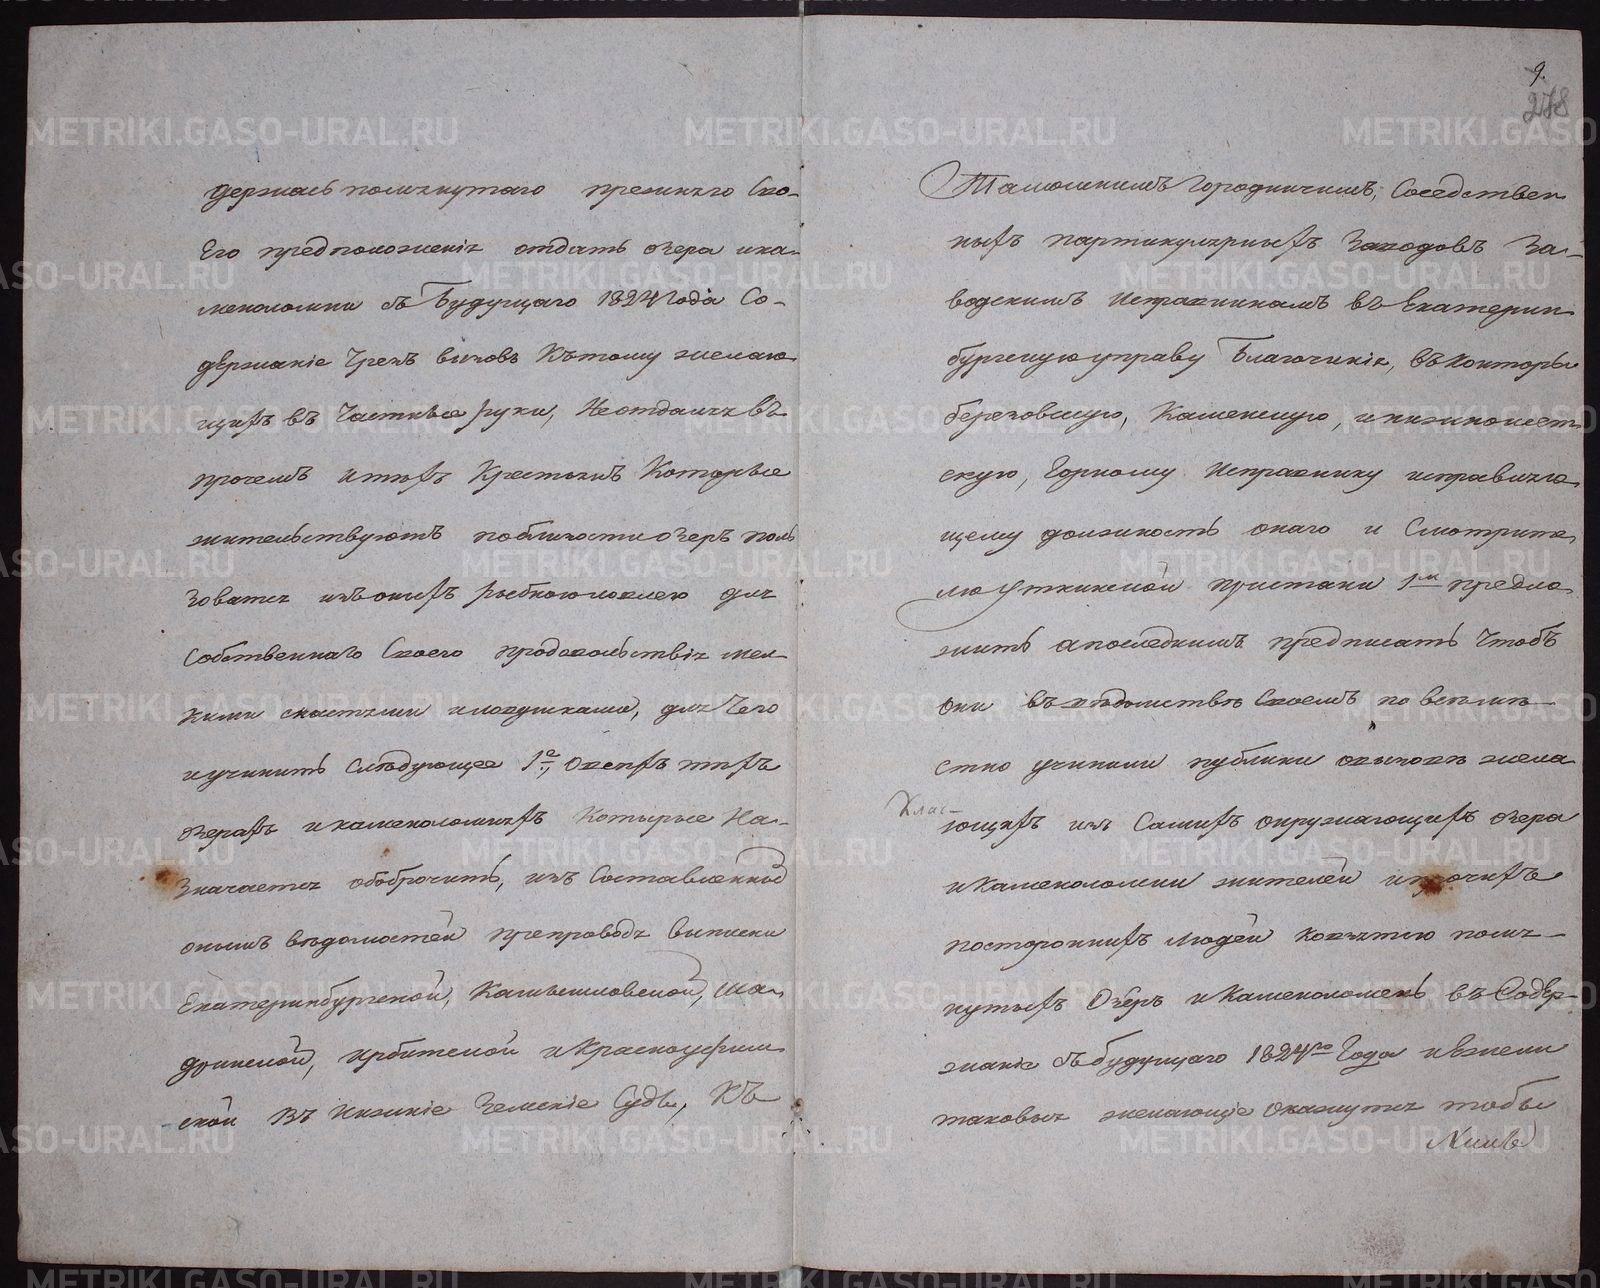 держась помянутаго прежняго Сво-
Его предположенія отдать озера и ка-
меноломни съ Будущаго 1824 Года Со-
держаніе Чрезъ вызовъ Къ тому желаю
щихъ въ Частные руки, Не отдаляя въ
прочемъ и тѣхъ Крестьянъ Которые
жительствуютъ поблизости озеръ поль
Зоватся изъ оныхъ рыбною ловлею для
Собственнаго Своего продовольствія мел
кими снастями и ловушками, для Чего
и учинить Слѣдующее 1е, О всѣхъ тѣхъ
озерахъ и каменоломняхъ Которые На-
Значается обоброчить, изъ Составленной
онымъ вѣдомостей препроводя выписки
Екатеринбургской, Камышловской, Ша-
дринской, Ирбитской и Красноуфим
ской Въ Нижніе Земскіе Суды, Къ
9.
278
Тамошнимъ Городничимъ, Соседствен
ныхъ партикулярныхъ Заводовъ За-
водскимъ Исправникамъ въ Екатерин
бургскую управу Благочинія, въ Конторы
березовскую, Каменскую, и нижноисет
скую, Горному Исправнику исправляю
щему должность онаго и Смотрите
лю Уткинской пристани 1м предло
жить а последнимъ предписать Чтобъ
Они въ вѣдомствѣ Своемъ по всемѣ-
стно учинили публики о вызовѣ жела
Клас-
ющихъ изъ Самихъ окружающихъ озера
и Каменоломни жителей и прочихъ
постороннихъ людей ко взятію помя-
нутыхъ Озеръ и Каменоломенъ въ Содер-
жаніе съ будущаго 1824го Года и ежели
таковыя желающіе Окажутся тобы